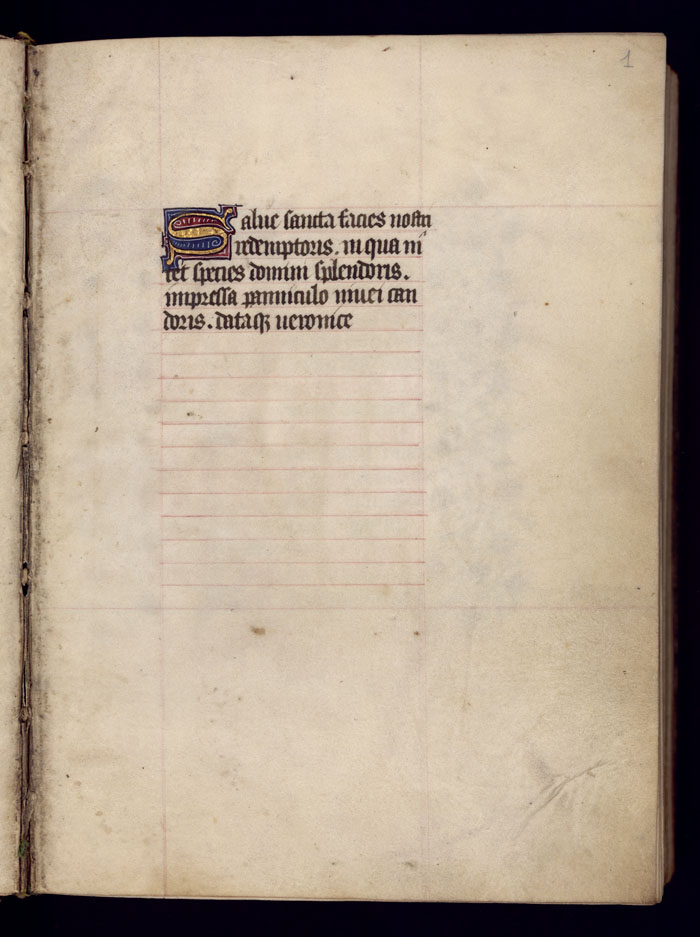 1
Salue sancta facies nostri
redemptoris. in qua ni
tet species diuini splendoris.
impressa panniculo niuei can
doris. dataqꝫ ueronice